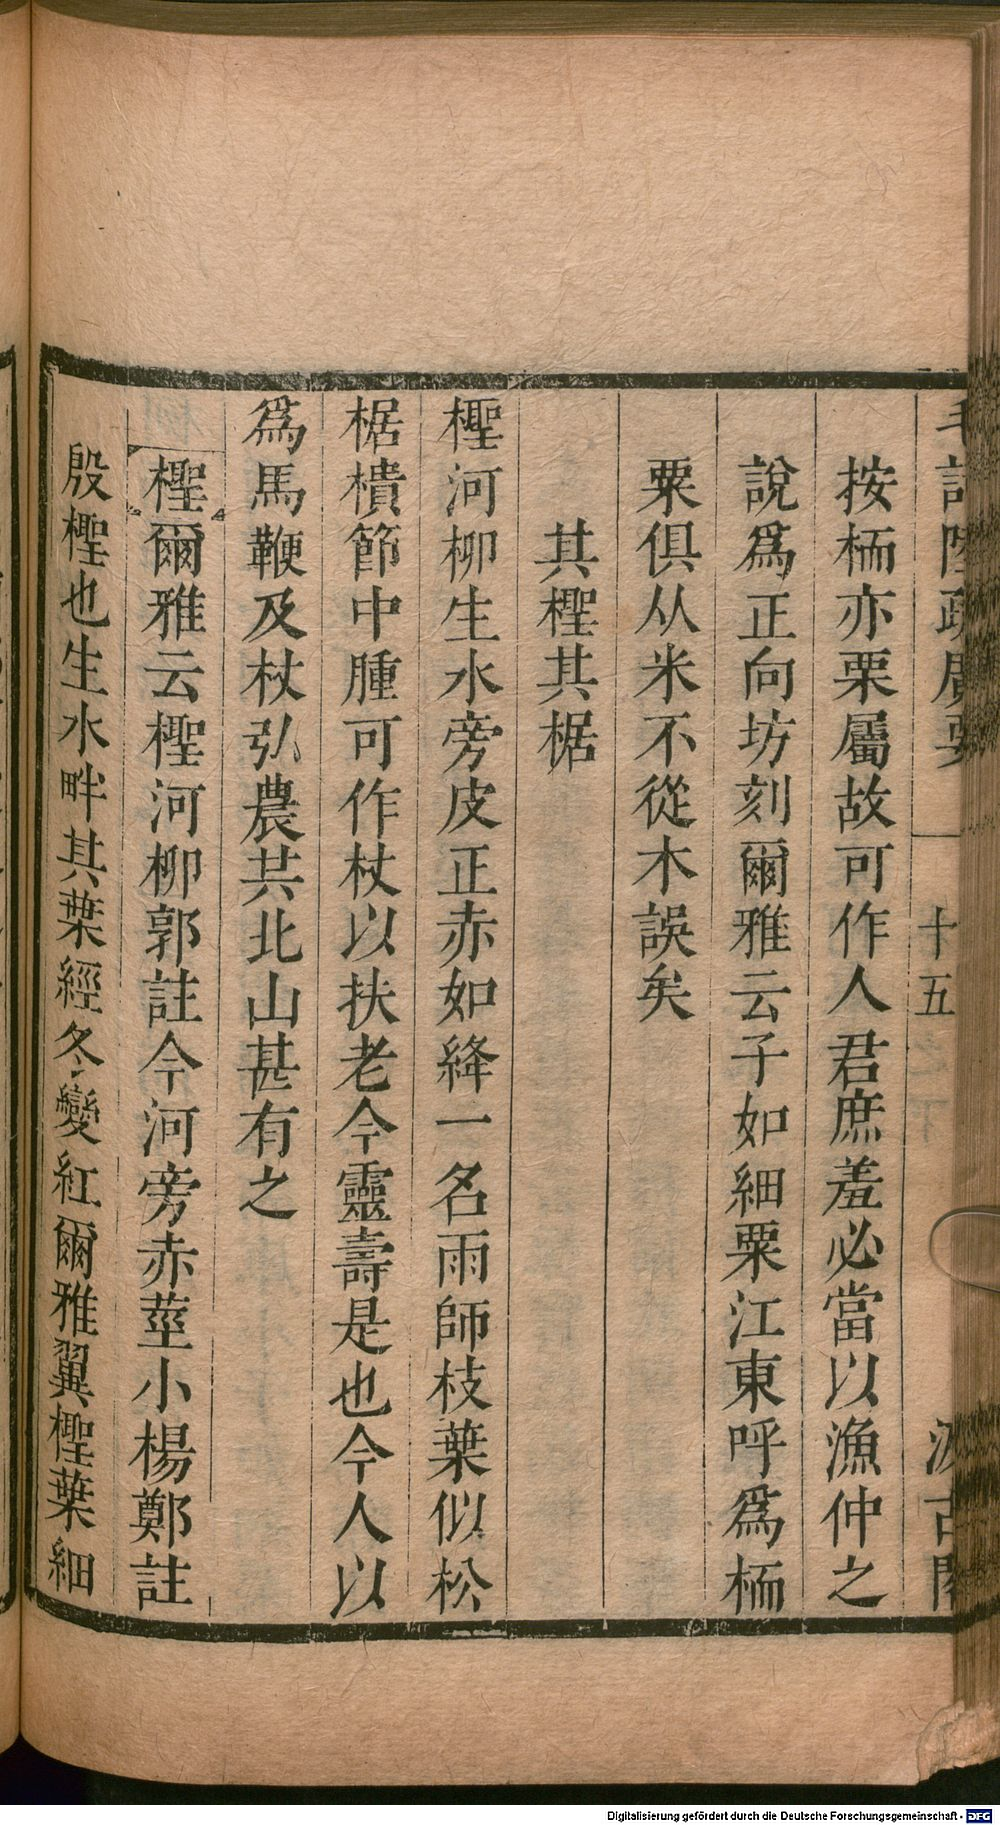 毛詩陸疏廣要
十五
汲古閣
按栭亦栗屬故可作人君庶羞必當以漁仲之
說爲正向坊刻爾雅云子如細粟江東呼爲栭
粟俱从米不從木誤矣
其檉其椐
檉河柳生水旁皮正赤如絳一名雨師枝葉似松
椐樻節中腫可作杖以扶老今靈壽是也今人以
爲馬鞭及杖弘農共北山甚有之
檉爾雅云檉河柳郭註今河旁赤莖小楊鄭註
殷檉也生水畔其葉經冬變紅爾雅翼檉葉細
Digitalisierung gefördert durch die Deutsche Forschungsgemeinschaft - DFG